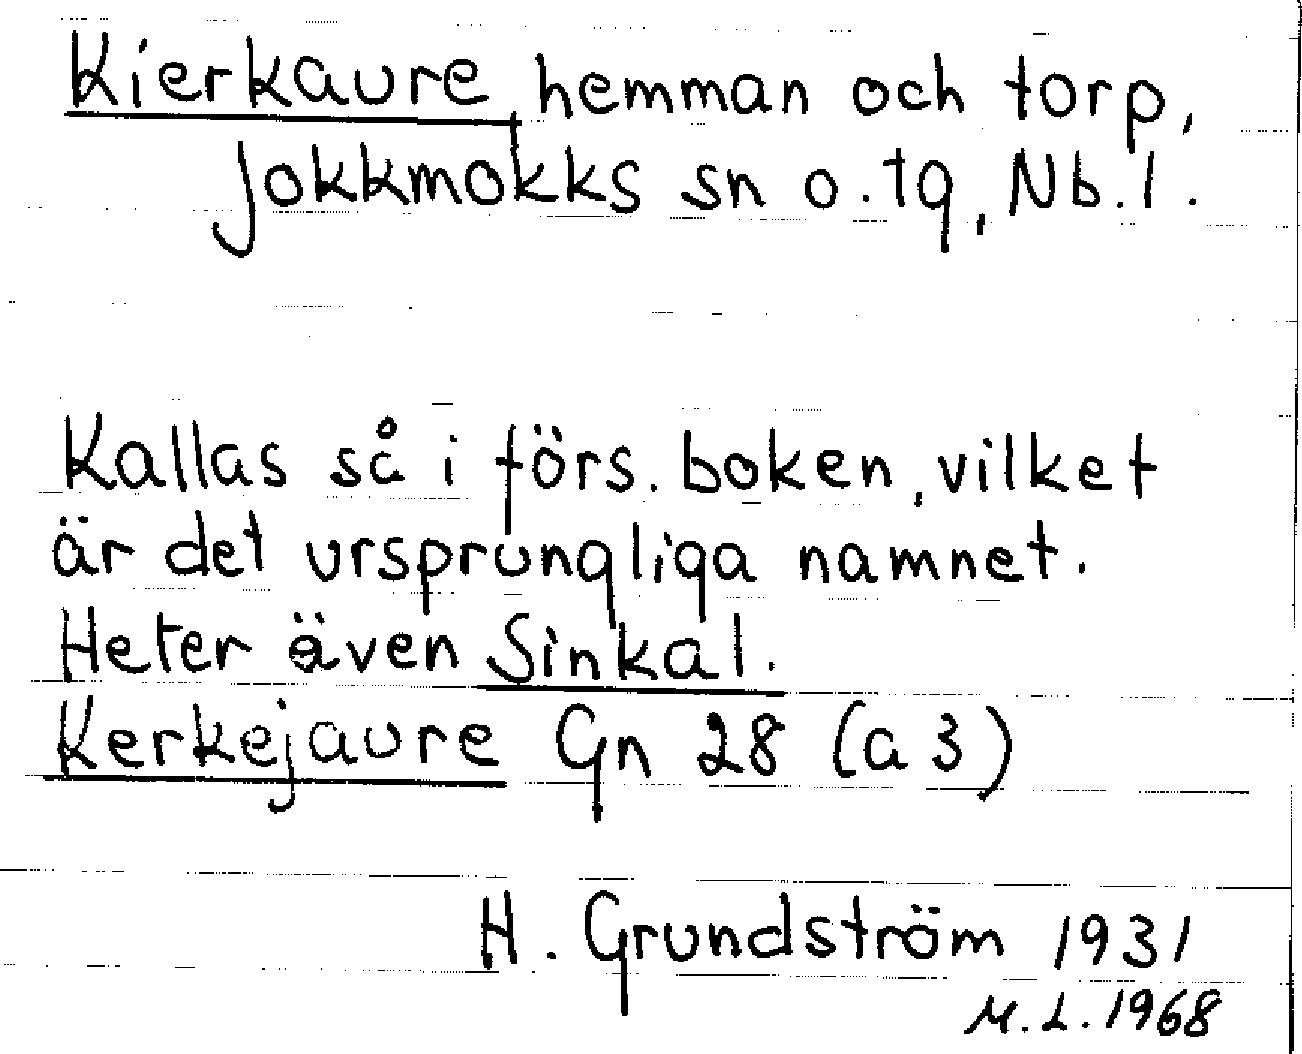 Kierkaure, hemman och torp,
Jokkmokks sn o. tg, Nb. l.
Kallas så i förs. boken, vilket
är det ursprungliga namnet.
Heter även Sinkal.
Kerkejaure Gn 28 (a3)
H. Grundström 1931
M.L. 1968